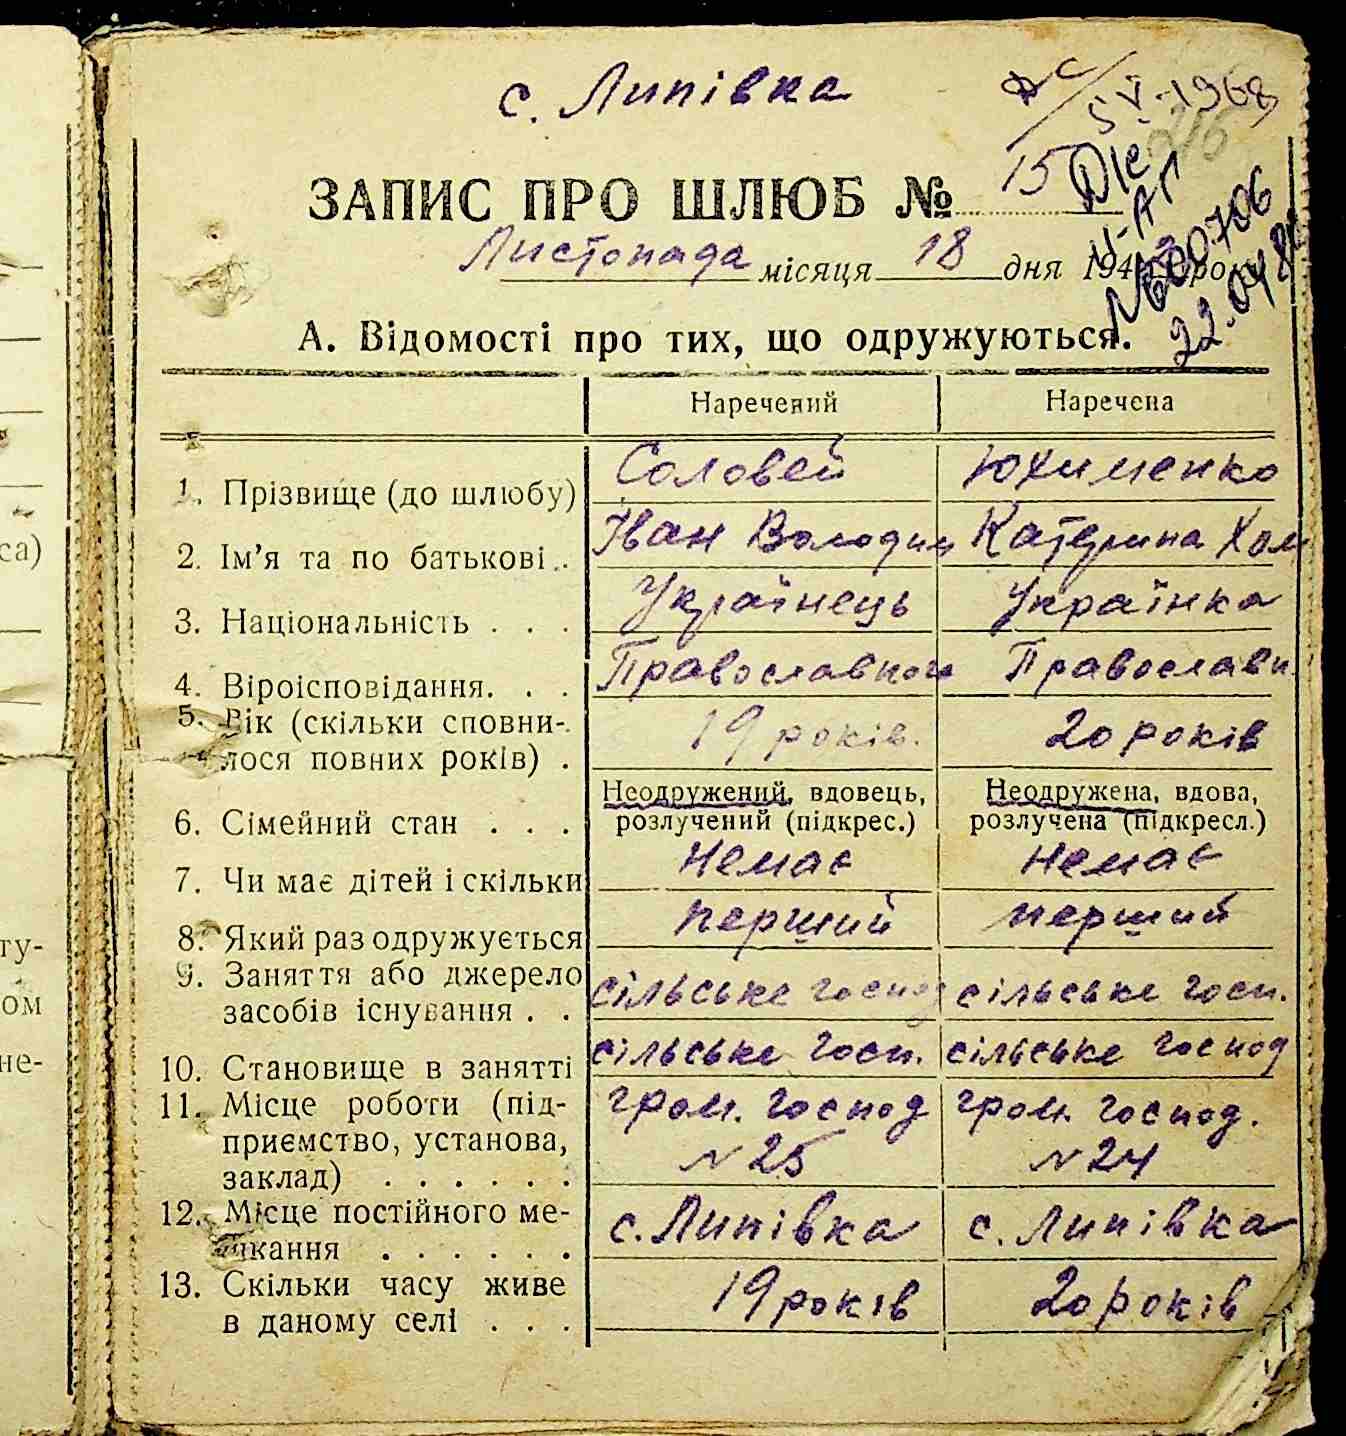 с. Липівка
5 V-1968
ЗАПИС ПРО ШЛЮБ № 15
Листопада місяця 18 дня 194 року
№ 600706
22.04.8
А. Відомості про тих, що одружуються.
Наречений Наречена
1. Прізвище (до шлюбу) Соловей Юхименко
2. Ім’я та по батькові . . Іван Володим Катерина Хом
3. Національність . . . Українець Українка
4. Віроісповідання. . . Православного Православн.
5. Вік (скільки сповни-
лося повних років) . 19 років. 20 років
6. Сімейний стан . . . Неодружений, вдовець, розлучений (підкрес.) Неодружена, вдова, розлучена (підкресл.)
7. Чи має дітей і скільки Немає Немає
8. Який раз одружується перший перший
9. Заняття або джерело
засобів існування . . сільське господ сільське госп.
10. Становище в занятті сільське госп. сільське господ
11. Місце роботи (під-
приємство, установа,
заклад) . . . . . . гром. господ №25 гром. господ. №24
12. Місце постійного ме-
шкання . . . . . . с. Липівка с. Липівка
13. Скільки часу живе
в даному селі . . . 19 років 20 років
са)
ту-
ом
не-